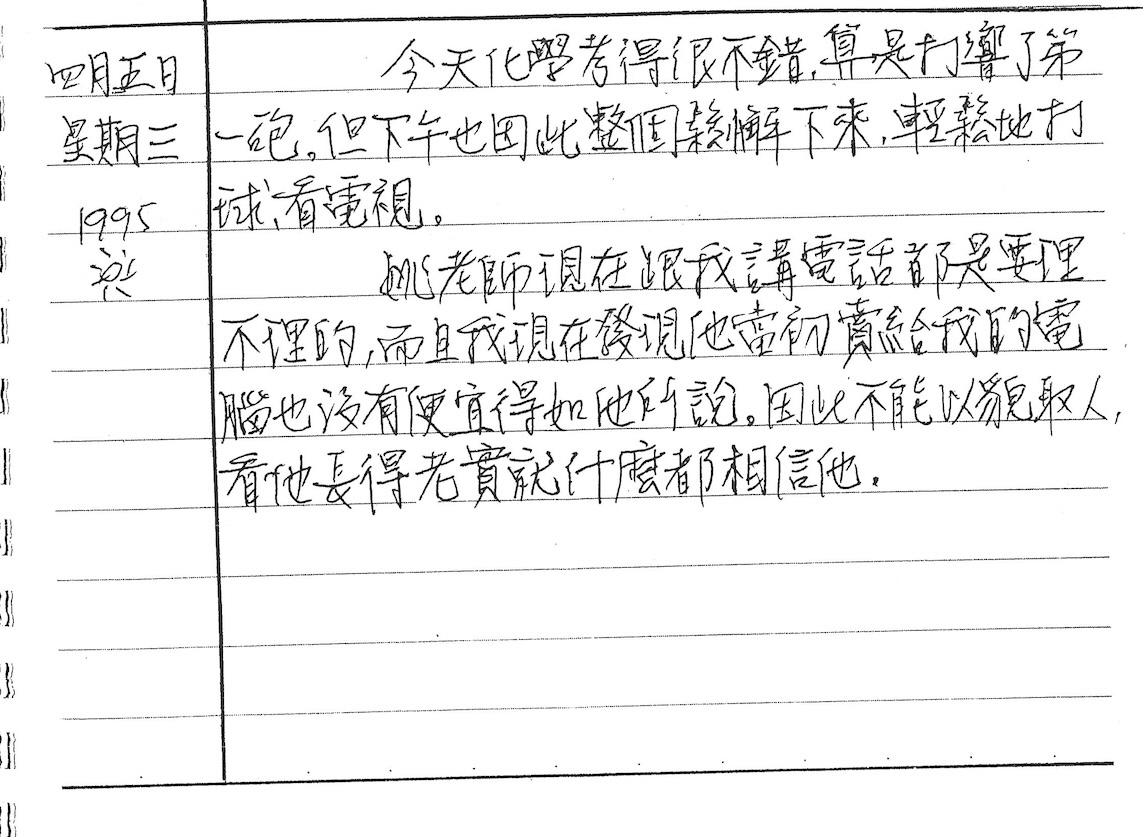 四月五日
星期三
1995
今天化學考得很不錯,算是打響了第
一砲。但下午也因此整個鬆懈下來,輕鬆地打
球、看電視。
姚老師現在跟我講電話都是要理
不理的,而且我現在發現他當初賣給我的電
腦也沒有便宜得如他所說。因此不能以貌取人,
看他長得老實就什麼都相信他.